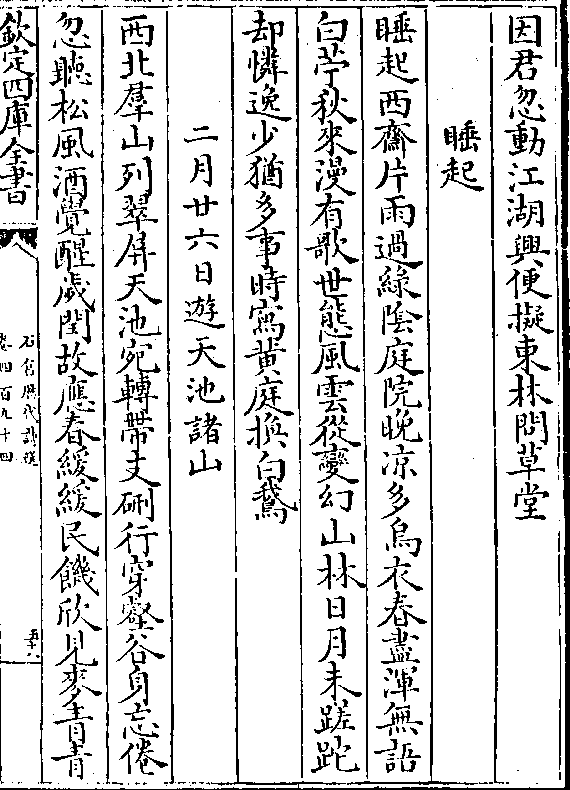 因君忽動江湖興便擬東林問草堂
睡起
睡起西齋片雨過綠陰庭院晚凉多烏衣春盡渾無語
白苧秋來漫有歌世態風雲從變幻山林日月未蹉跎
却憐逸少猶多事時寫黄庭換白鵞
二月廿六日遊天池諸山
西北羣山列翠屏天池宛轉帶支硎行穿壑谷身忘倦
忽聽松風酒覺醒歲閏故應春緩緩民饑欣見麥青青
欽定四庫全書
石倉歴代詩選
卷四百九十四
五十八